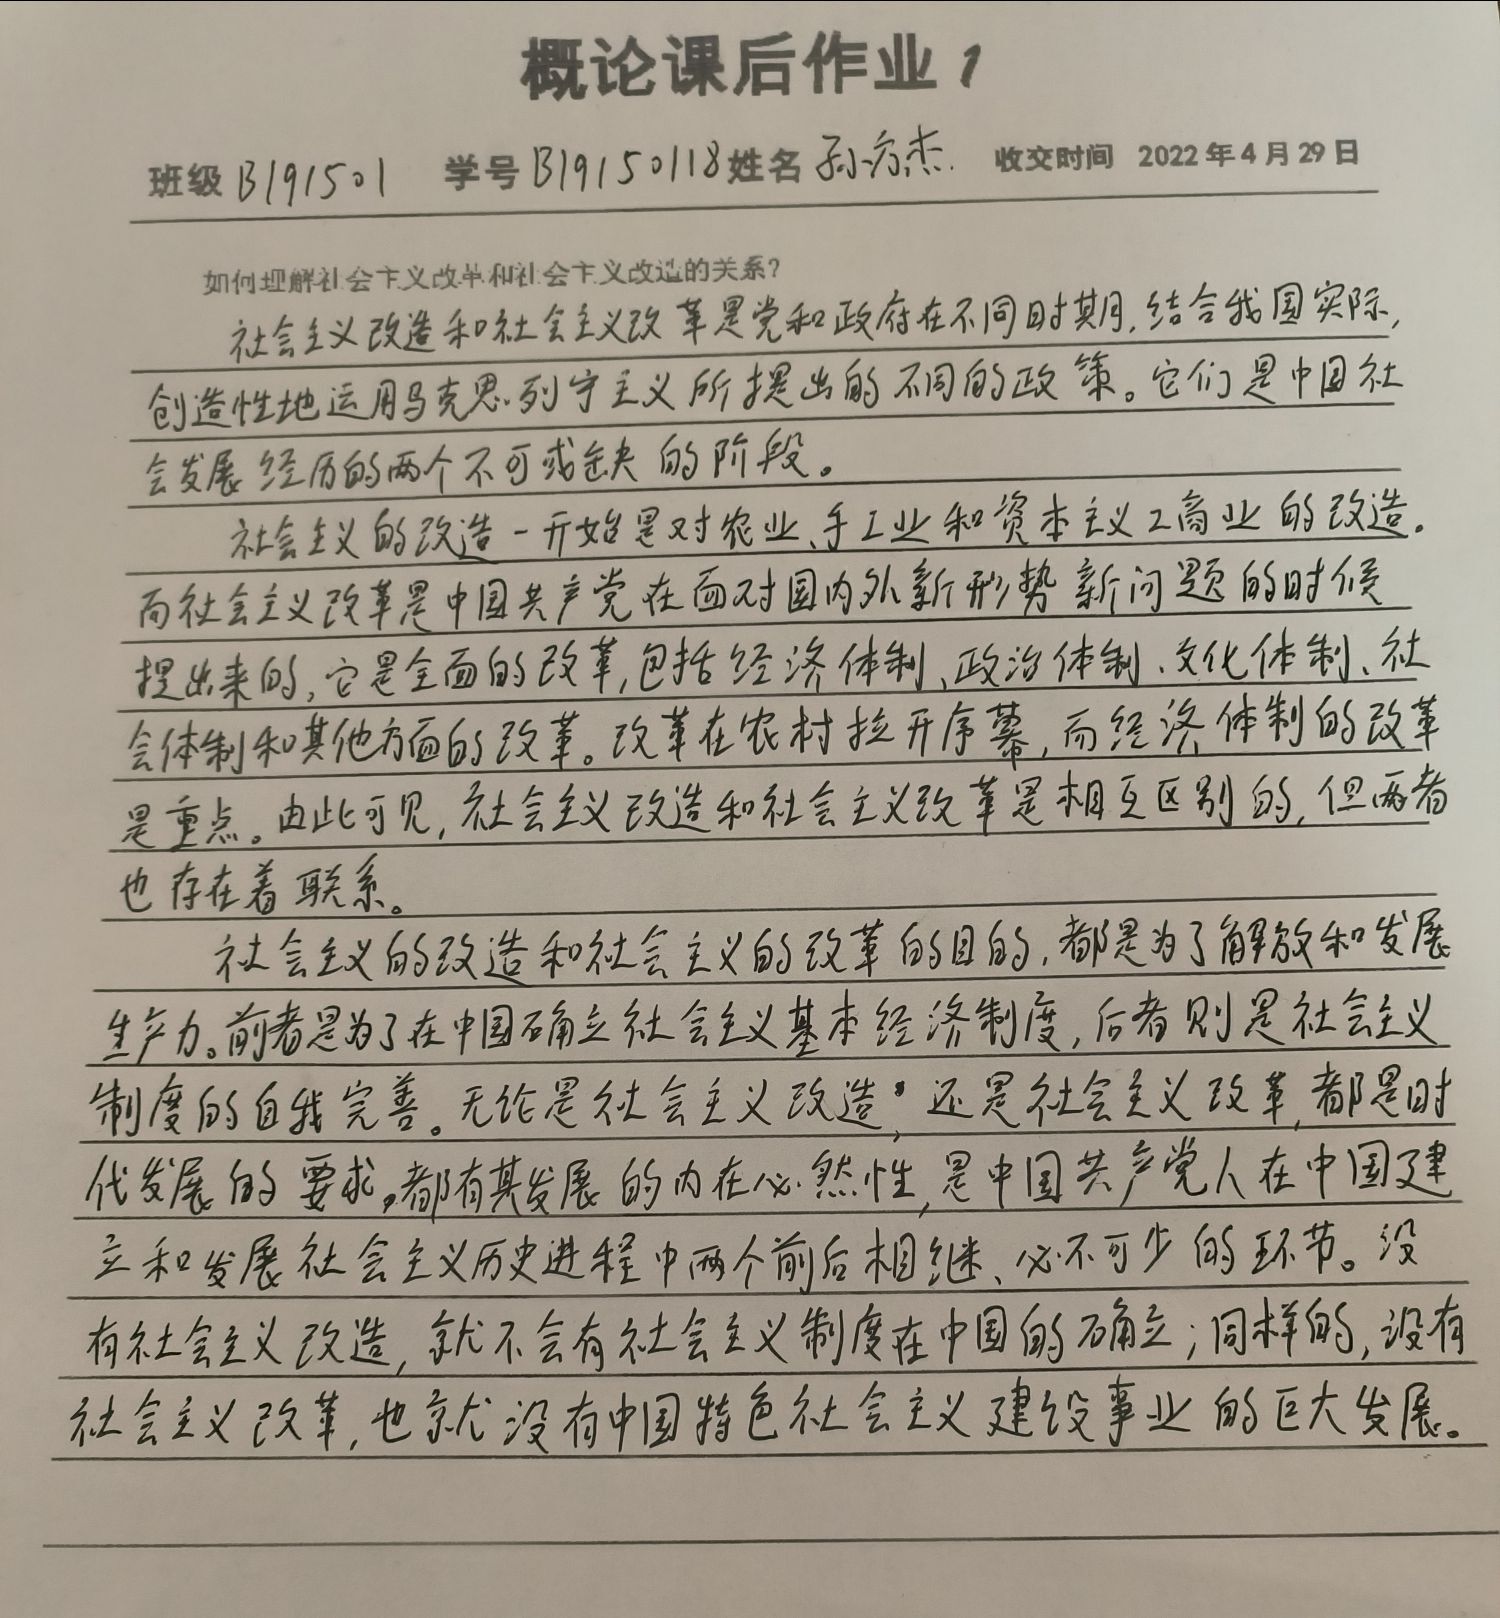 概论课后作业1
班级 B191501 学号 B19150118 姓名 孙方杰 收交时间 2022年4月29日
如何理解社会主义改革和社会主义改造的关系?
社会主义改造和社会主义改革是党和政府在不同时期,结合我国实际,
创造性地运用马克思列宁主义所提出的不同的政策。它们是中国社
会发展经历的两个不可或缺的阶段。
社会主义的改造一开始是对农业、手工业和资本主义工商业的改造。
而社会主义改革是中国共产党在面对国内外新形势新问题的时候
提出来的,它是全面的改革,包括经济体制、政治体制、文化体制、社
会体制和其他方面的改革。改革在农村拉开序幕,而经济体制的改革
是重点。由此可见,社会主义改造和社会主义改革是相互区别的,但两者
也存在着联系。
社会主义的改造和社会主义的改革的目的,都是为了解放和发展
生产力。前者是为了在中国确立社会主义基本经济制度,后者则是社会主义
制度的自我完善。无论是社会主义改造,还是社会主义改革,都是时
代发展的要求,都有其发展的内在必然性,是中国共产党人在中国建
立和发展社会主义历史进程中两个前后相继、必不可少的环节。没
有社会主义改造,就不会有社会主义制度在中国的确立;同样的,没有
社会主义改革,也就没有中国特色社会主义建设事业的巨大发展。